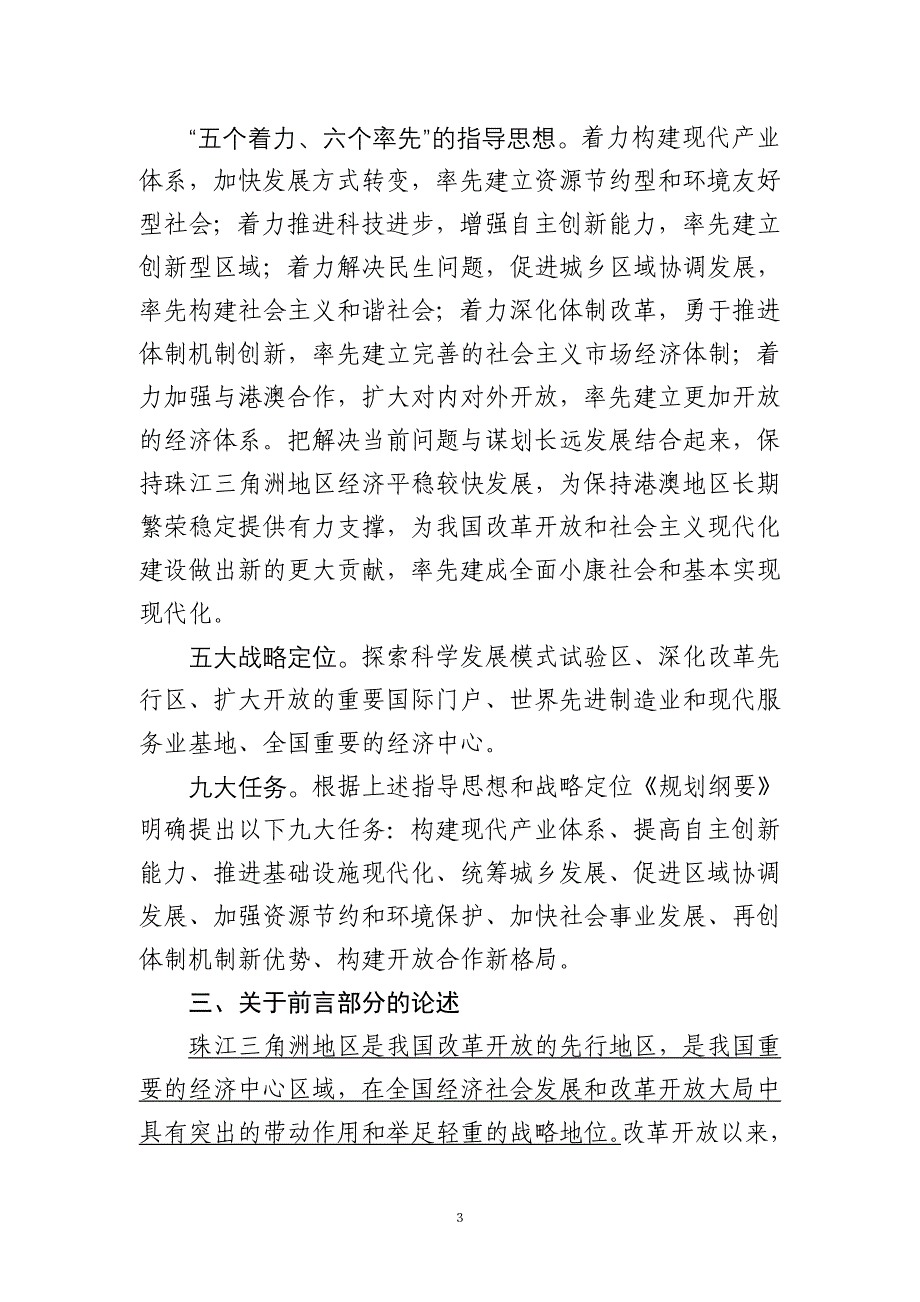 “五个着力、六个率先”的指导思想。着力构建现代产业
体系，加快发展方式转变，率先建立资源节约型和环境友好
型社会；着力推进科技进步，增强自主创新能力，率先建立
创新型区域；着力解决民生问题，促进城乡区域协调发展，
率先构建社会主义和谐社会；着力深化体制改革，勇于推进
体制机制创新，率先建立完善的社会主义市场经济体制；着
力加强与港澳合作，扩大对内对外开放，率先建立更加开放
的经济体系。把解决当前问题与谋划长远发展结合起来，保
持珠江三角洲地区经济平稳较快发展，为保持港澳地区长期
繁荣稳定提供有力支撑，为我国改革开放和社会主义现代化
建设做出新的更大贡献，率先建成全面小康社会和基本实现
现代化。
五大战略定位。探索科学发展模式试验区、深化改革先
行区、扩大开放的重要国际门户、世界先进制造业和现代服
务业基地、全国重要的经济中心。
九大任务。根据上述指导思想和战略定位《规划纲要》
明确提出以下九大任务：构建现代产业体系、提高自主创新
能力、推进基础设施现代化、统筹城乡发展、促进区域协调
发展、加强资源节约和环境保护、加快社会事业发展、再创
体制机制新优势、构建开放合作新格局。
三、关于前言部分的论述
珠江三角洲地区是我国改革开放的先行地区，是我国重
要的经济中心区域，在全国经济社会发展和改革开放大局中
具有突出的带动作用和举足轻重的战略地位。改革开放以来，
3